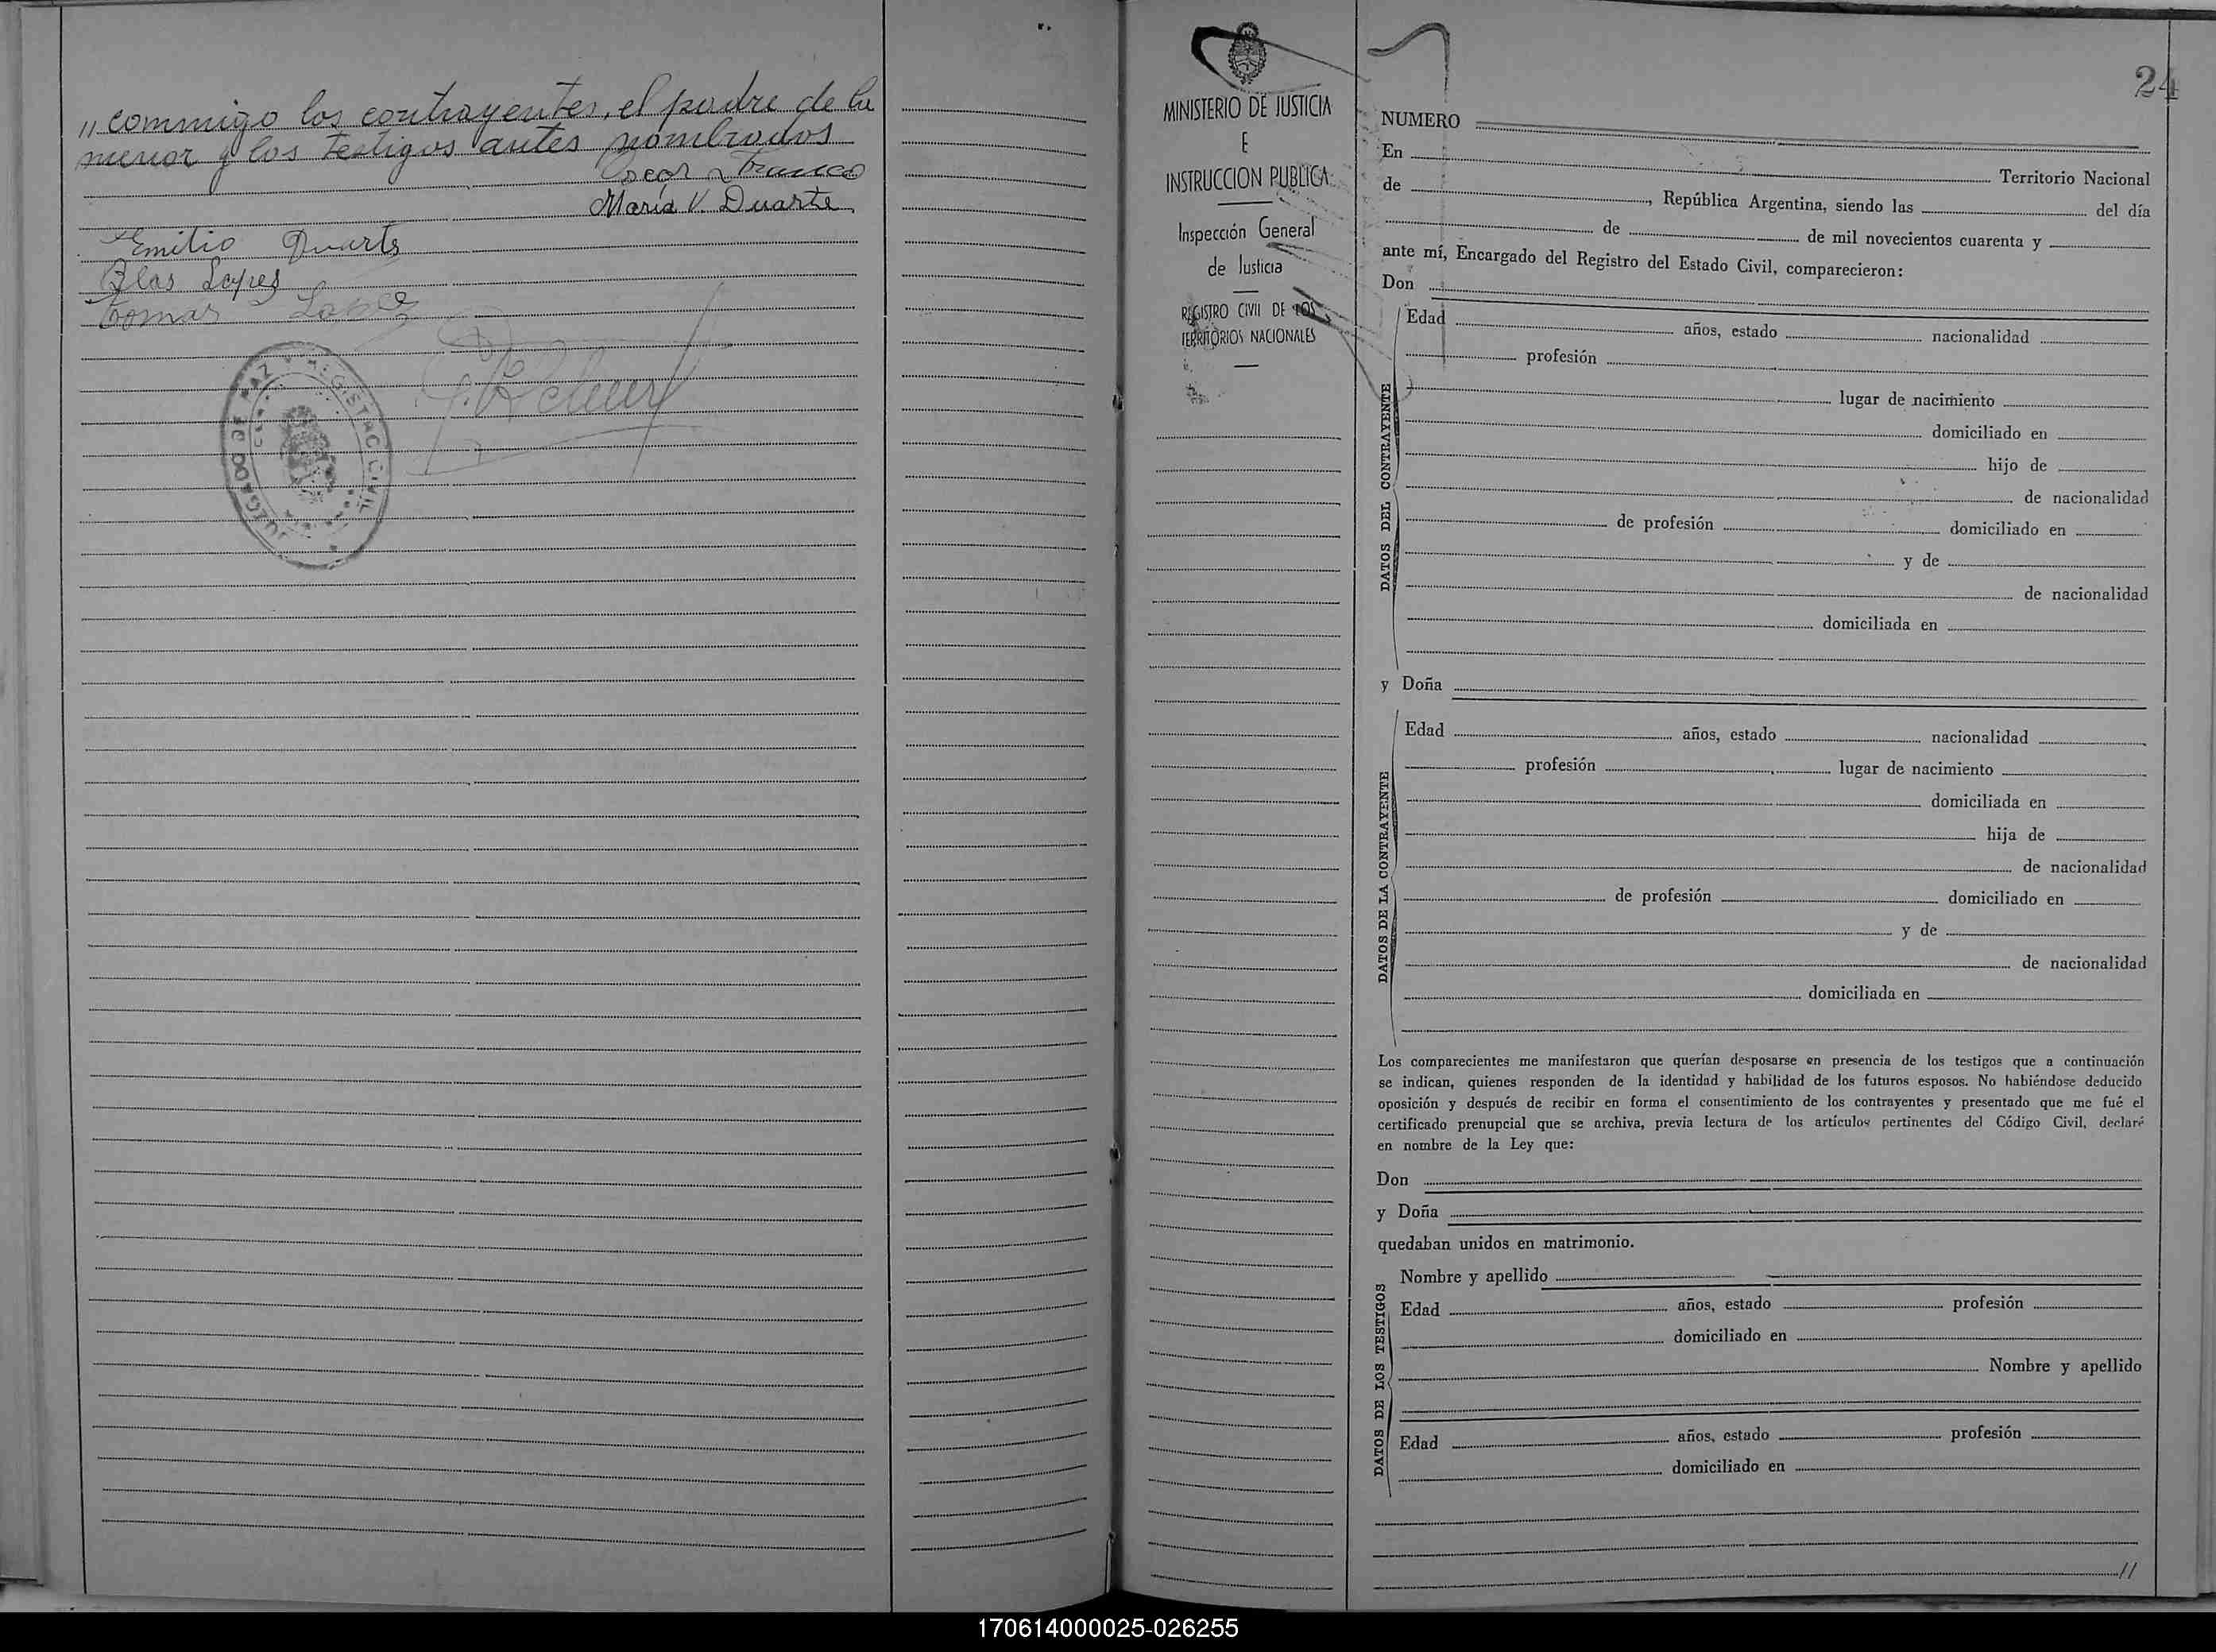 " commigo los contrayentes, el padre de la
menor y los testigos antes nombrados
Oscar Franco
Maria V. Duarte
Emilio Duarte
Blas Lopes
Tomas Lopez
JUZGADO DE PAZ
MINISTERIO DE JUSTICIA
E
INSTRUCCION PUBLICA
Inspección General
de Justicia
REGISTRO CIVIL DE LOS
TERRITORIOS NACIONALES
24
NUMERO
En Territorio Nacional
de , República Argentina, siendo las del día
de de mil novecientos cuarenta y
ante mí, Encargado del Registro del Estado Civil, comparecieron:
Don
DATOS DEL CONTRAYENTE
Edad años, estado nacionalidad
profesión
lugar de nacimiento
domiciliado en
hijo de
de nacionalidad
de profesión domiciliado en
y de
de nacionalidad
domiciliada en
y Doña
DATOS DE LA CONTRAYENTE
Edad años, estado nacionalidad
profesión lugar de nacimiento
domiciliada en
hija de
de nacionalidad
de profesión domiciliado en
y de
de nacionalidad
domiciliada en
Los comparecientes me manifestaron que querían desposarse en presencia de los testigos que a continuación
se indican, quienes responden de la identidad y habilidad de los futuros esposos. No habiéndose deducido
oposición y después de recibir en forma el consentimiento de los contrayentes y presentado que me fué el
certificado prenupcial que se archiva, previa lectura de los artículos pertinentes del Código Civil, declaré
en nombre de la Ley que:
Don
y Doña
quedaban unidos en matrimonio.
DATOS DE LOS TESTIGOS
Nombre y apellido
Edad años, estado profesión
domiciliado en
Nombre y apellido
Edad años, estado profesión
domiciliado en
//
170614000025-026255